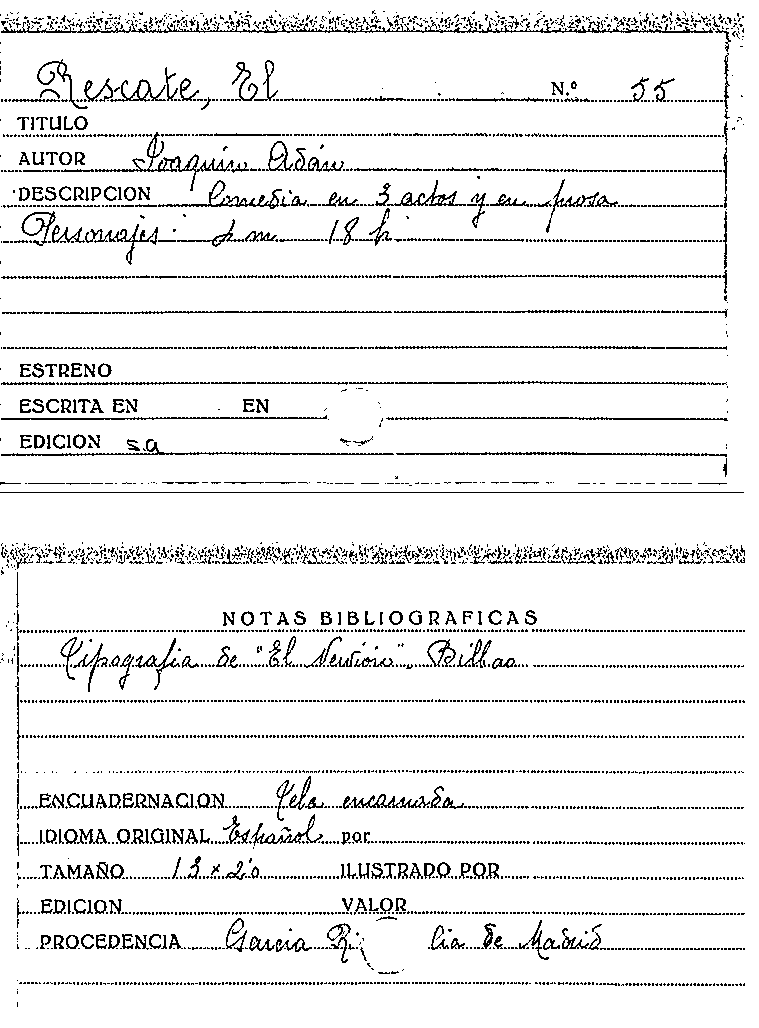 Rescate, El N.º 55
TITULO
AUTOR Joaquín Adán
DESCRIPCION Comedia en 3 actos y en prosa
Personajes: m. 18 h.
ESTRENO
ESCRITA EN EN
EDICION s.a
NOTAS BIBLIOGRAFICAS
Tipografia de "El Nervión". Bilbao
ENCUADERNACION Tela encarnada
IDIOMA ORIGINAL Español por
TAMAÑO 13 x 20 ILUSTRADO POR
EDICION VALOR
PROCEDENCIA Garcia Ri cia de Madrid